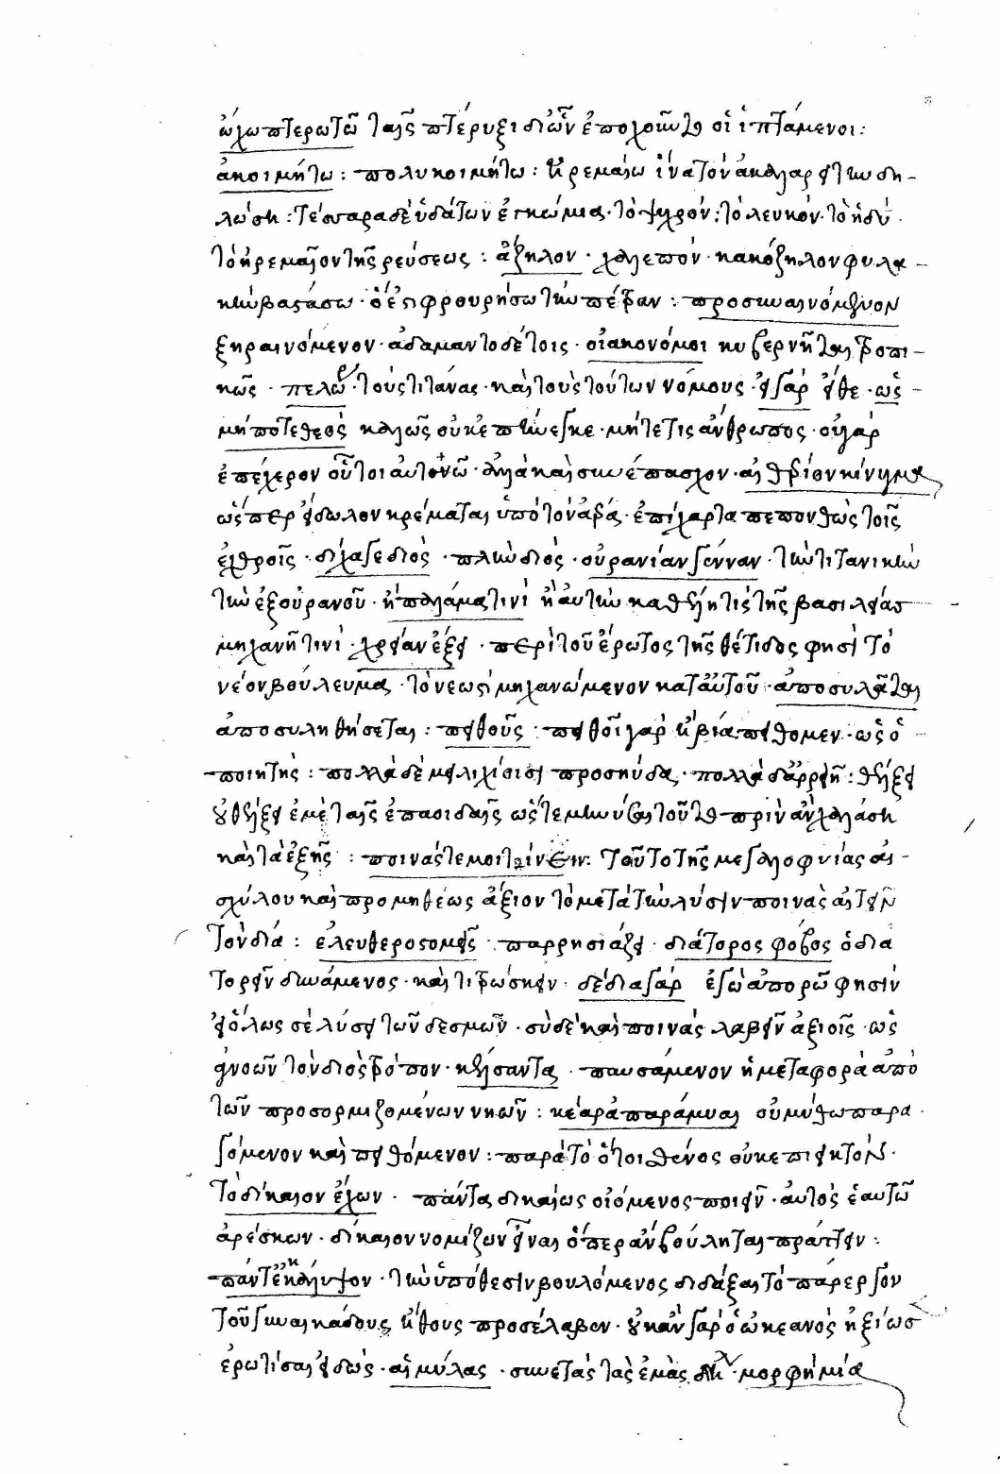 ὠχυπτερωτῶ ταῖς πτέρυξι δι' ὧν ἐποχοῦνται οἱ ἱπτάμενοι:
ἀκοιμήτω: πολυκοιμήτω: ἠρεμαίω ἵνα τὸν ἀκαλαρείτην δη-
λώση: τέσσαρα δὲ ὑδάτων ἐγκώμια· τὸ ψυχρόν: τὸ λευκόν· τὸ ἡδύ·
τὸ ἠρεμαῖον τῆς ῥεύσεως: ἄζηλον· χαλεπόν· κακόζηλον φυλα-
κὴν βαστάσω· ὅ ἐστι φρουρήσω τὴν πέτραν: προσαυαινόμενον
ξηραινόμενον· ἀδαμαντοδέτοις· οἰακονόμοι κυβερνῆται τροπι-
κῶς· πελώρ· τοὺς τιτάνας· καὶ τοὺς τούτων νόμους· εἰ γὰρ εἴθε· ὡς
μήποτε θεὸς καλῶς οὐκ ἐπήνεγκε· μήτε τις ἄνθρωπος· οὐ γὰρ
ἐπέχαιρον οὗτοι αὐτῶ· ἀλλὰ καὶ συνέπασχον· αἰθέριον κίνυγμα
ὥσπερ εἴδωλον κρέμαται ὑπὸ τὸν ἀέρα· ἐπίχαρτα πεπονθὼς τοῖς
ἐχθροῖς· δίχα γε διὸς· πλὴν διὸς· οὐρανίαν γένναν· τὴν τιτανικὴν
τὴν ἐξ οὐρανοῦ· ἢ παλάμα τινὶ ἢ αὐτὴν καθέλη τις τῆς βασιλείας
μηχανῆ τινὶ· χρείαν ἕξει· περὶ τοῦ ἔρωτος τῆς θέτιδος φησὶ τὸ
νέον βούλευμα· τὸ νεωστὶ μηχανώμενον κατ' αὐτοῦ· ἀποσυλᾶται
ἀποσυληθήσεται: πειθοῦς· πειθοῖ γὰρ ἢ βία πείθομεν· ὡς ὁ
ποιητής: πολλὰ δὲ μειλιχίοισι προσηύδα· πολλὰ δ' ἀρειῆ: θέλξει
οὐ θέλξει ἐμὲ ταῖς ἐπαοιδαῖς ὥστε μηνῦσαι τοῦτο πρὶν ἂν χαλάση
καὶ τὰ ἑξῆς: ποινάς τέ μοι τίνειν: τοῦτο τῆς μεγαλοφυίας αἰ-
σχύλου καὶ προμηθέως ἄξιον τὸ μετὰ τὴν λύσιν ποινὰς αἰτεῖν
τὸν δία: ἐλευθεροστομεῖς· παρρησιάζει· διάτορος φόβος ὁ δια
τορεῖν δυνάμενος· καὶ τιτρώσκειν· δέδια γὰρ ἐγὼ ἀπορῶ φησὶν
εἰ ὅλως σὲ λύσει τῶν δεσμῶν· σὺ δὲ καὶ ποινὰς λαβεῖν ἀξιοῖς· ὡς
ἀγνοῶν τὸν διὸς τρόπον· κέλσαντα· παυσάμενον ἡ μεταφορὰ ἀπὸ
τῶν προσορμιζομένων νηῶν: κέαρ ἀπαράμυθ οὐ μύθω παρα
γόμενον καὶ πειθόμενον: παρὰ τὸ ὅτοι σθένος οὐκ ἐπιεικτόν·
τὸ δίκαιον ἔχων· πάντα δικαίως οἰόμενος ποιεῖν· αὐτὸς ἑαυτῶ
ἀρέσκων· δίκαιον νομίζων εἶναι ὅπερ ἂν βούληται πράττειν:
πάντ' ἐκκάλυψον· τὴν ὑπόθεσιν βουλόμενος διδάξαι τὸ πάρεργον
τοῦ γυναικείους ἤθους προσέλαβεν· οὐκ ἂν γὰρ ὁ ὠκεανὸς ἠξίωσ
ἐρωτῆσαι εἰδώς· αἱμύλας· συνετὰς τὰς ἐμὰς· μορφὴ μία